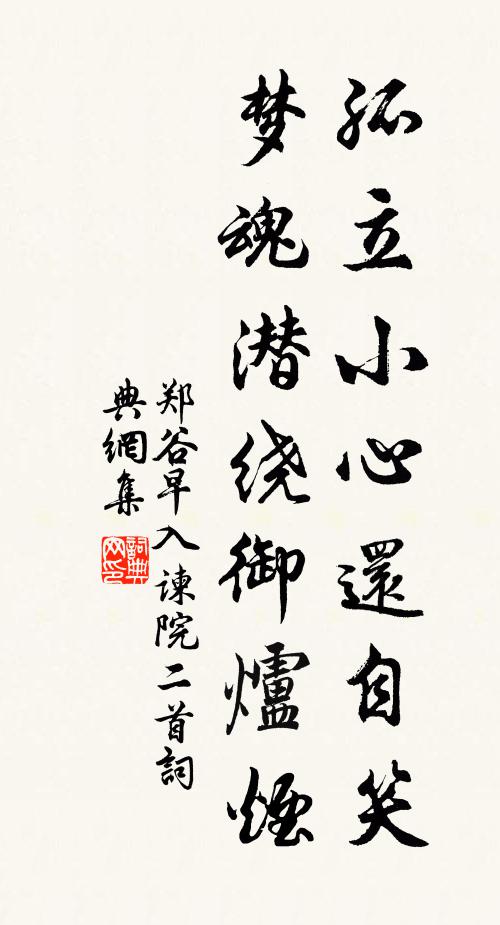 孤立小心還自笑
梦魂潜绕御爐煙
郑谷早入谏院二首詞
典網集
詞典网印